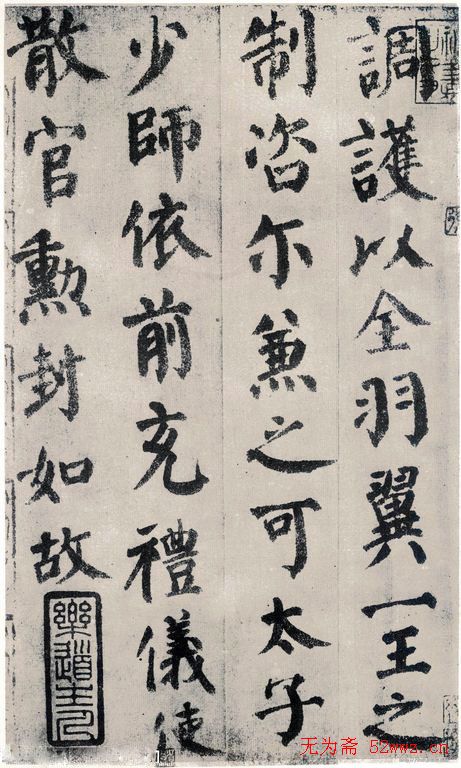 調護以全羽翼一王之
制咨尓兼之可太子
少師依前充禮儀使
散官勲封如故
樂道主人
无为斋 52wwz.cn